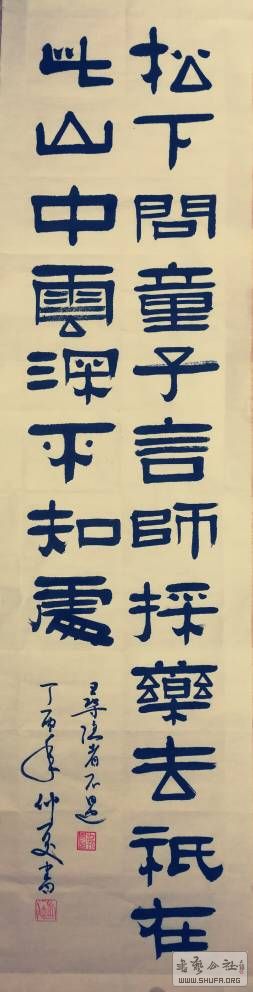 松下問童子言師採藥去祇在
此山中雲深不知處
尋隐者不遇
丁酉年仲夏書
书艺公社
WWW.SHUFA.ORG